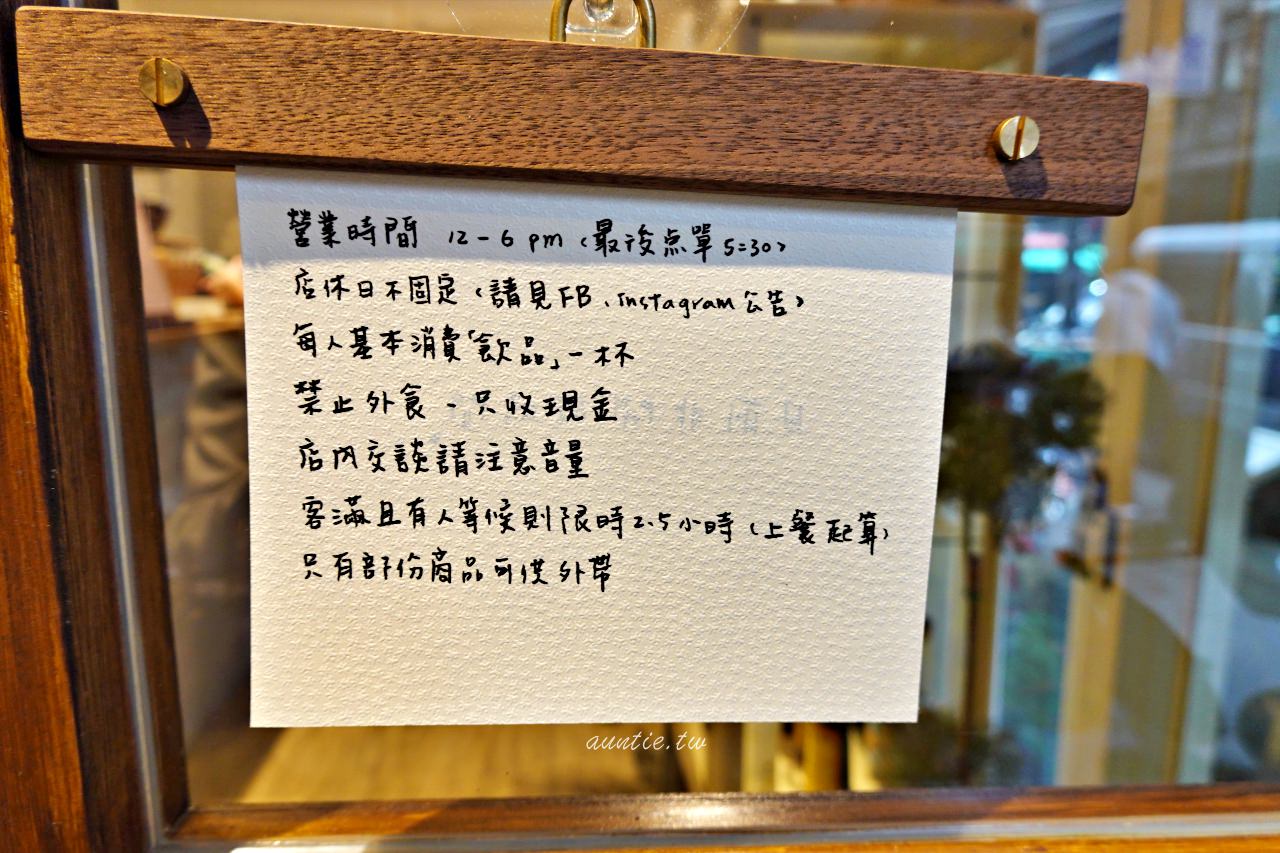 營業時間 12-6 pm（最後点單5:30）
店休日不固定（請見FB、Instagram公告）
每人基本消費「飲品」一杯
禁止外食 - 只收現金
店內交談請注意音量
客滿且有人等候則限時2.5小時（上餐起算）
只有部份商品可供外帶
auntie.tw